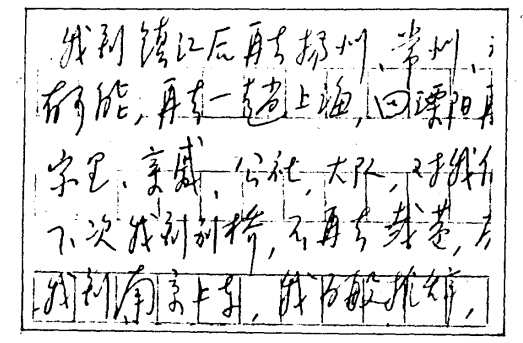 我到镇江后再去扬州、常州、
有可能，再去一趟上海，回溧阳
家里、亲戚、公社、大队，对我
下次我到别桥，不再去载莲，
我到南京上车，我百般推辞，